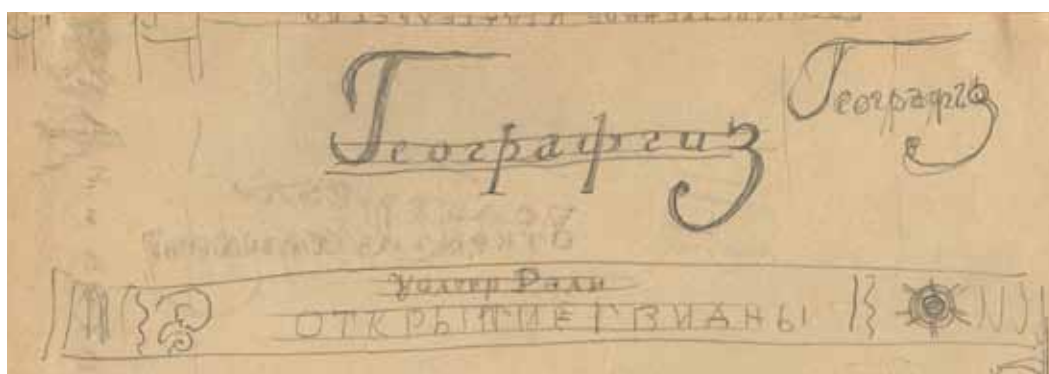 Географгиз
Географгиз
Уолтер Рали
ОТКРЫТИЕ ГВИАНЫ